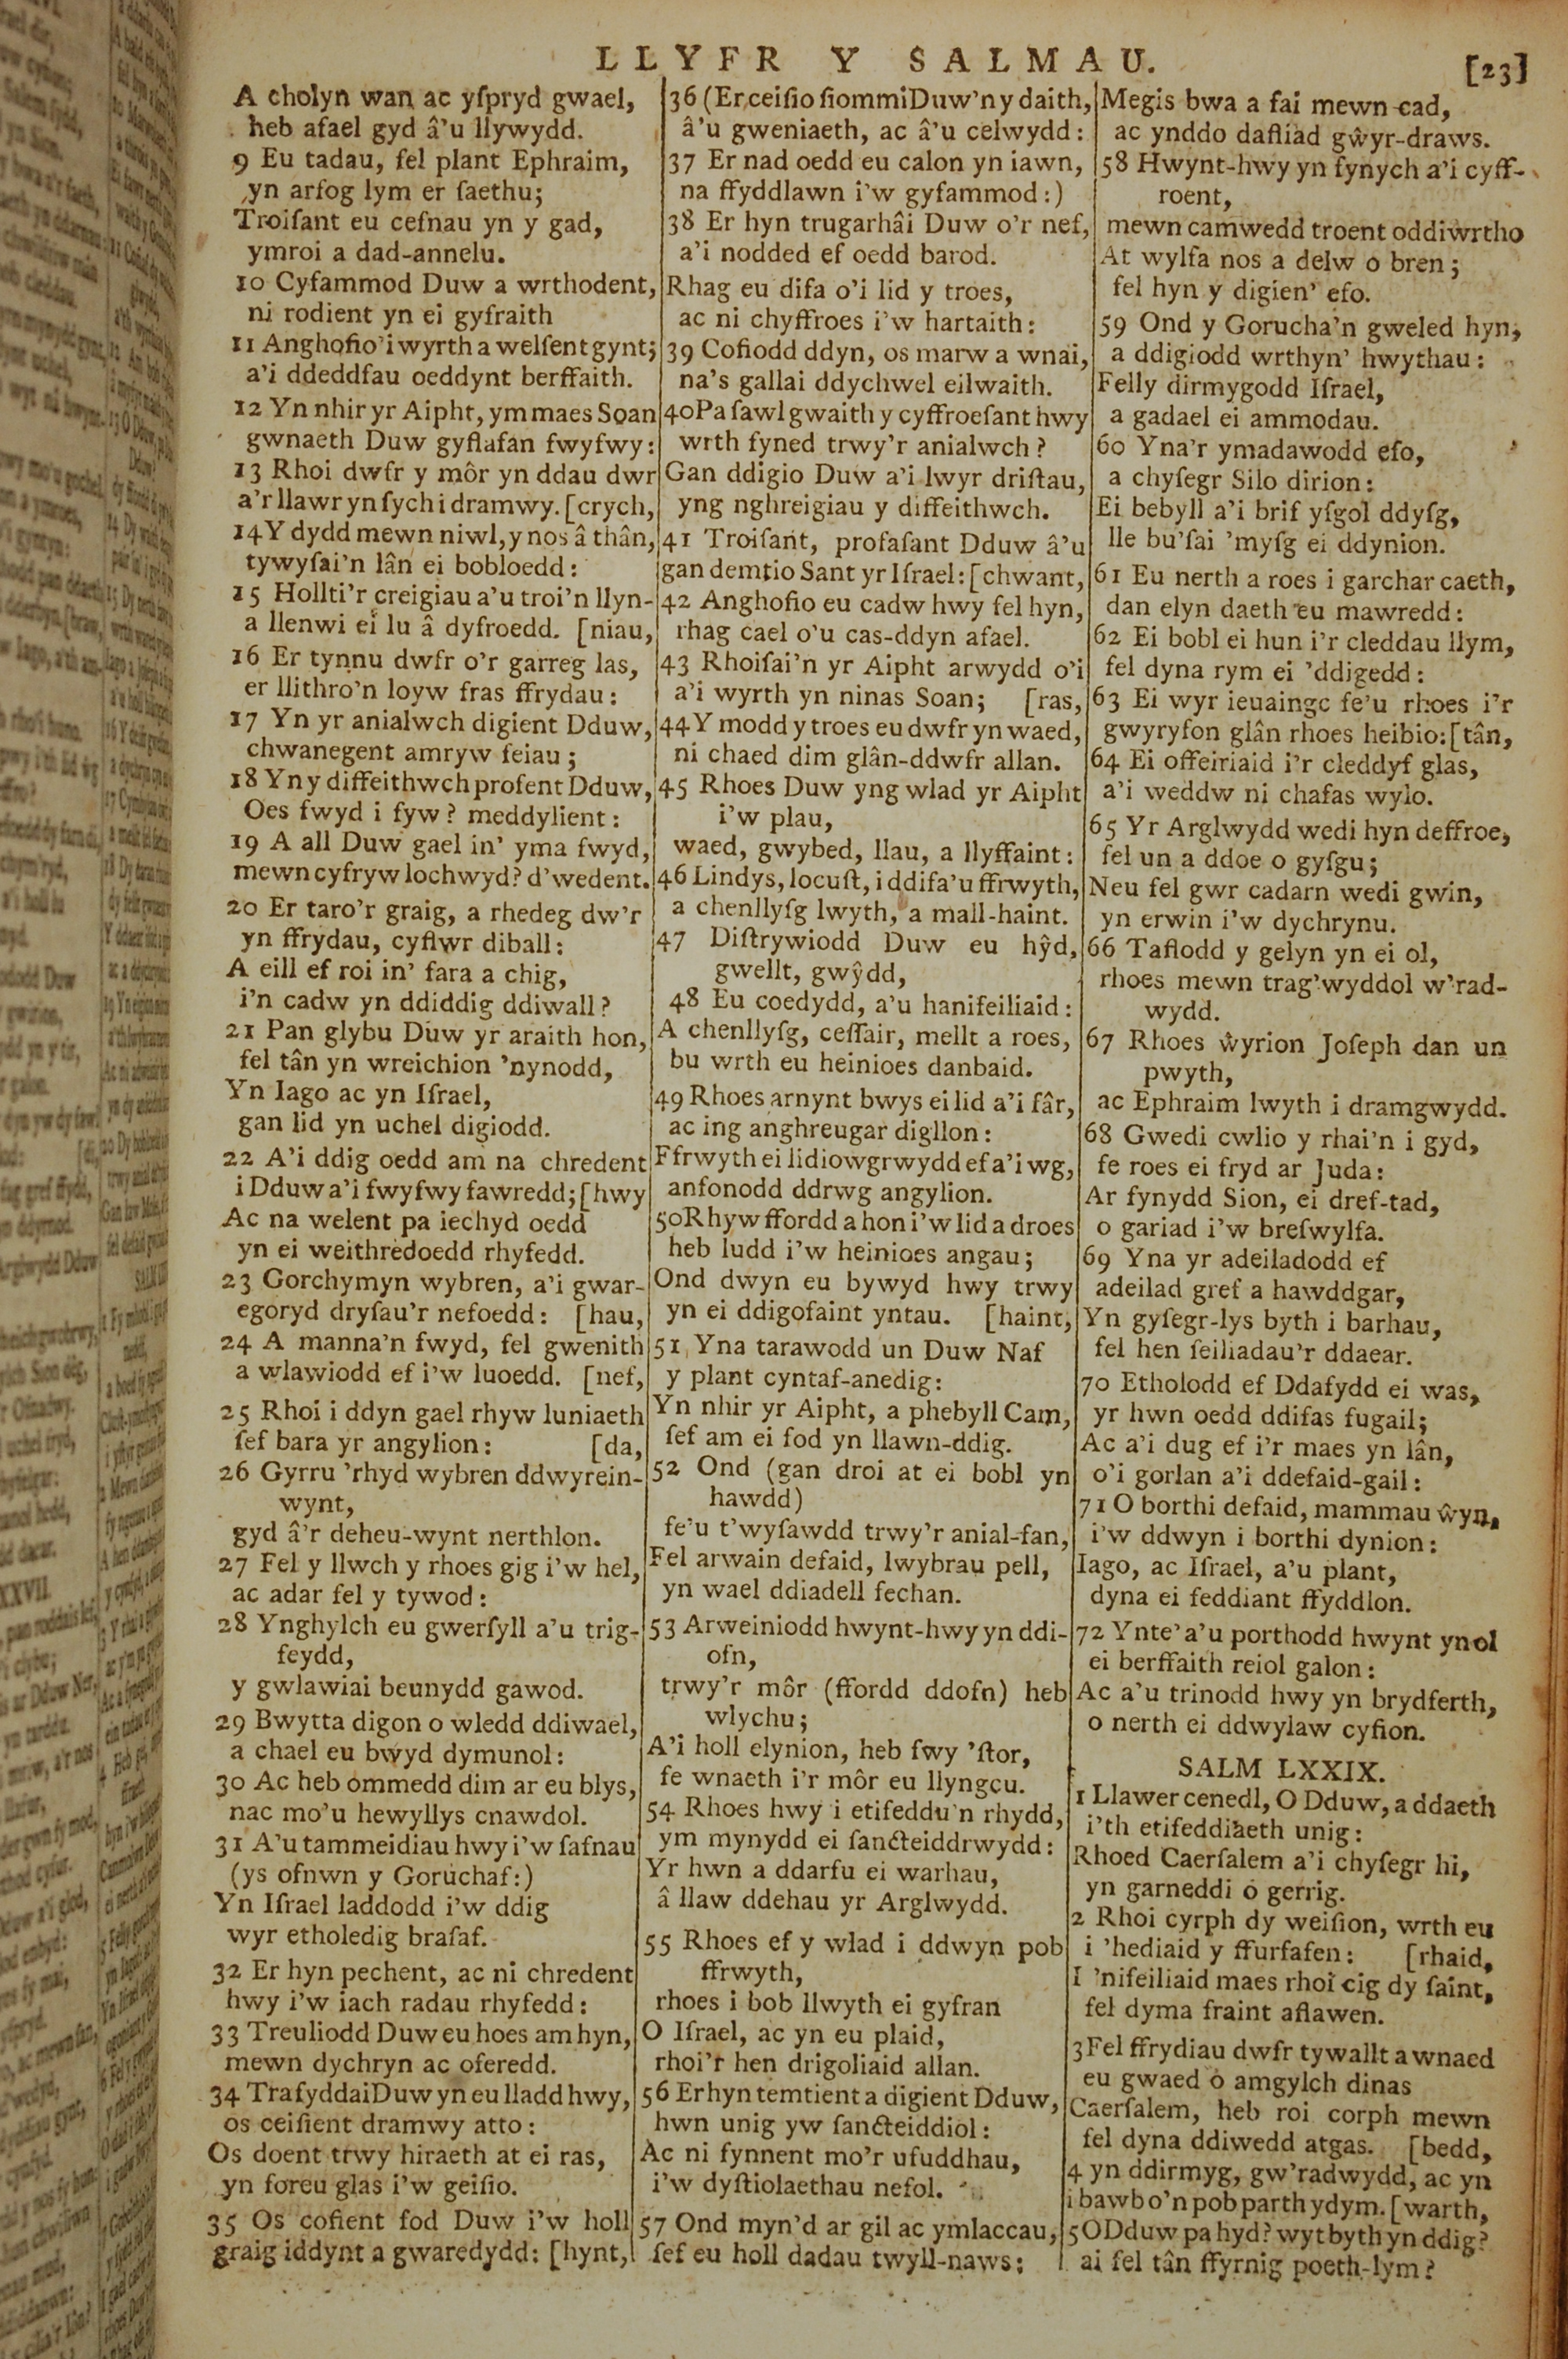 LLYFR Y SALMAU.
[23]
A cholyn wan ac yſpryd gwael,
heb afael gyd â'u llywydd.
9 Eu tadau, fel plant Ephraim,
yn arfog lym er ſaethu;
Troiſant eu cefnau yn y gad,
ymroi a dad-annelu.
10 Cyfammod Duw a wrthodent,
ni rodient yn ei gyfraith
11 Anghofio'i wyrth a welſent gynt;
a'i ddeddfau oeddynt berffaith.
12 Yn nhir yr Aipht, ym maes Soan
gwnaeth Duw gyflafan fwyfwy:
13 Rhoi dwfr y môr yn ddau dwr
a'r llawr yn ſych i dramwy. [crych,
14 Y dydd mewn niwl, y nos â thân,
tywyſai'n lân ei bobloedd:
15 Hollti'r creigiau a'u troi'n llyn-
a llenwi ei lu â dyfroedd. [niau,
16 Er tynnu dwfr o'r garreg las,
er llithro'n loyw fras ffrydau:
17 Yn yr anialwch digient Dduw,
chwanegent amryw feiau;
18 Yn y diffeithwch profent Dduw,
Oes fwyd i fyw? meddylient:
19 A all Duw gael in' yma fwyd,
mewn cyfryw lochwyd? d'wedent.
20 Er taro'r graig, a rhedeg dw'r
yn ffrydau, cyflwr diball:
A eill ef roi in' fara a chig,
i'n cadw yn ddiddig ddiwall?
21 Pan glybu Duw yr araith hon,
fel tân yn wreichion 'nynodd,
Yn Iago ac yn Iſrael,
gan lid yn uchel digiodd.
22 A'i ddig oedd am na chredent
i Dduw a'i fwyfwy fawredd; [hwy
Ac na welent pa iechyd oedd
yn ei weithredoedd rhyfedd.
23 Gorchymyn wybren, a'i gwar-
egoryd dryſau'r nefoedd: [hau,
24 A manna'n fwyd, fel gwenith
a wlawiodd ef i'w luoedd. [nef,
25 Rhoi i ddyn gael rhyw luniaeth
ſef bara yr angylion: [da,
26 Gyrru 'rhyd wybren ddwyrein-
wynt,
gyd â'r deheu-wynt nerthlon.
27 Fel y llwch y rhoes gig i'w hel,
ac adar fel y tywod:
28 Ynghylch eu gwerſyll a'u trig-
feydd,
y gwlawiai beunydd gawod.
29 Bwytta digon o wledd ddiwael,
a chael eu bwyd dymunol:
30 Ac heb ommedd dim ar eu blys,
nac mo'u hewyllys cnawdol.
31 A'u tammeidiau hwy i'w ſafnau
(ys ofnwn y Goruchaf:)
Yn Iſrael laddodd i'w ddig
wyr etholedig braſaf.
32 Er hyn pechent, ac ni chredent
hwy i'w iach radau rhyfedd:
33 Treuliodd Duw eu hoes am hyn,
mewn dychryn ac oferedd.
34 Tra fyddai Duw yn eu lladd hwy,
os ceiſient dramwy atto:
Os doent trwy hiraeth at ei ras,
yn foreu glas i'w geiſio.
35 Os cofient fod Duw i'w holl
graig iddynt a gwaredydd: [hynt,
36 (Er ceiſio ſiommi Duw'n y daith,
â'u gweniaeth, ac â'u celwydd:
37 Er nad oedd eu calon yn iawn,
na ffyddlawn i'w gyfammod:)
38 Er hyn trugarhâi Duw o'r nef,
a'i nodded ef oedd barod.
Rhag eu difa o'i lid y troes,
ac ni chyffroes i'w hartaith:
39 Cofiodd ddyn, os marw a wnai,
na's gallai ddychwel eilwaith.
40 Pa ſawl gwaith y cyffroeſant hwy
wrth fyned trwy'r anialwch?
Gan ddigio Duw a'i lwyr driſtau,
yng nghreigiau y diffeithwch.
41 Troiſant, profaſant Dduw â'u
gan demtio Sant yr Iſrael: [chwant,
42 Anghofio eu cadw hwy fel hyn,
rhag cael o'u cas-ddyn afael.
43 Rhoiſai'n yr Aipht arwydd o'i
a'i wyrth yn ninas Soan; [ras,
44 Y modd y troes eu dwfr yn waed,
ni chaed dim glân-ddwfr allan.
45 Rhoes Duw yng wlad yr Aipht
i'w plau,
waed, gwybed, llau, a llyffaint:
46 Lindys, locuſt, i ddifa'u ffrwyth,
a chenllyſg lwyth, a mall-haint.
47 Diſtrywiodd Duw eu hŷd,
gwellt, gwŷdd,
48 Eu coedydd, a'u hanifeiliaid:
A chenllyſg, ceſſair, mellt a roes,
bu wrth eu heinioes danbaid.
49 Rhoes arnynt bwys ei lid a'i fâr,
ac ing anghreugar digllon:
Ffrwyth ei lidiowgrwydd ef a'i wg,
anfonodd ddrwg angylion.
50 Rhyw ffordd a hon i'w lid a droes
heb ludd i'w heinioes angau;
Ond dwyn eu bywyd hwy trwy
yn ei ddigofaint yntau. [haint,
51 Yna tarawodd un Duw Naf
y plant cyntaf-anedig:
Yn nhir yr Aipht, a phebyll Cam,
ſef am ei fod yn llawn-ddig.
52 Ond (gan droi at ei bobl yn
hawdd)
fe'u t'wyſawdd trwy'r anial-fan,
Fel arwain defaid, lwybrau pell,
yn wael ddiadell fechan.
53 Arweiniodd hwynt-hwy yn ddi-
ofn,
trwy'r môr (ffordd ddofn) heb
wlychu;
A'i holl elynion, heb fwy 'ſtor,
fe wnaeth i'r môr eu llyngcu.
54 Rhoes hwy i etifeddu'n rhydd,
ym mynydd ei ſancteiddrwydd:
Yr hwn a ddarfu ei warhau,
â llaw ddehau yr Arglwydd.
55 Rhoes ef y wlad i ddwyn pob
ffrwyth,
rhoes i bob llwyth ei gyfran
O Iſrael, ac yn eu plaid,
rhoi'r hen drigoliaid allan.
56 Er hyn temtient a digient Dduw,
hwn unig yw ſancteiddiol:
Ac ni fynnent mo'r ufuddhau,
i'w dyſtiolaethau nefol.
57 Ond myn'd ar gil ac ymlaccau,
ſef eu holl dadau twyll-naws:
Megis bwa a fai mewn cad,
ac ynddo dafliad gŵyr-draws.
58 Hwynt-hwy yn fynych a'i cyff-
roent,
mewn camwedd troent oddiwrtho
At wylfa nos a delw o bren;
fel hyn y digien' efo.
59 Ond y Gorucha'n gweled hyn,
a ddigiodd wrthyn' hwythau:
Felly dirmygodd Iſrael,
a gadael ei ammodau.
60 Yna'r ymadawodd efo,
a chyſegr Silo dirion:
Ei bebyll a'i brif yſgol ddyſg,
lle bu'ſai 'myſg ei ddynion.
61 Eu nerth a roes i garchar caeth,
dan elyn daeth eu mawredd:
62 Ei bobl ei hun i'r cleddau llym,
fel dyna rym ei 'ddigedd:
63 Ei wyr ieuaingc fe'u rhoes i'r
gwyryfon glân rhoes heibio: [tân,
64 Ei offeiriaid i'r cleddyf glas,
a'i weddw ni chafas wylo.
65 Yr Arglwydd wedi hyn deffroe,
fel un a ddoe o gyſgu;
Neu fel gwr cadarn wedi gwin,
yn erwin i'w dychrynu.
66 Taflodd y gelyn yn ei ol,
rhoes mewn trag'wyddol w'rad-
wydd.
67 Rhoes ŵyrion Joſeph dan un
pwyth,
ac Ephraim lwyth i dramgwydd.
68 Gwedi cwlio y rhai'n i gyd,
fe roes ei fryd ar Juda:
Ar fynydd Sion, ei dref-tad,
o gariad i'w breſwylfa.
69 Yna yr adeiladodd ef
adeilad gref a hawddgar,
Yn gyſegr-lys byth i barhau,
fel hen ſeiliadau'r ddaear.
70 Etholodd ef Ddafydd ei was,
yr hwn oedd ddifas fugail;
Ac a'i dug ef i'r maes yn lân,
o'i gorlan a'i ddefaid-gail:
71 O borthi defaid, mammau ŵyn,
i'w ddwyn i borthi dynion:
Iago, ac Iſrael, a'u plant,
dyna ei feddiant ffyddlon.
72 Ynte' a'u porthodd hwynt yn ol
ei berffaith reiol galon:
Ac a'u trinodd hwy yn brydferth,
o nerth ei ddwylaw cyfion.
SALM LXXIX.
1 Llawer cenedl, O Dduw, a ddaeth
i'th etifeddiaeth unig:
Rhoed Caerſalem a'i chyſegr hi,
yn garneddi o gerrig.
2 Rhoi cyrph dy weiſion, wrth eu
i 'hediaid y ffurfafen: [rhaid,
I 'nifeiliaid maes rhoi cig dy ſaint,
fel dyma fraint aflawen.
3 Fel ffrydiau dwfr tywallt a wnaed
eu gwaed o amgylch dinas
Caerſalem, heb roi corph mewn
fel dyna ddiwedd atgas. [bedd,
4 yn ddirmyg, gw'radwydd, ac yn
i bawb o'n pob parth ydym. [warth,
5 O Dduw pa hyd? wyt byth yn ddig?
ai fel tân ffyrnig poeth-lym?